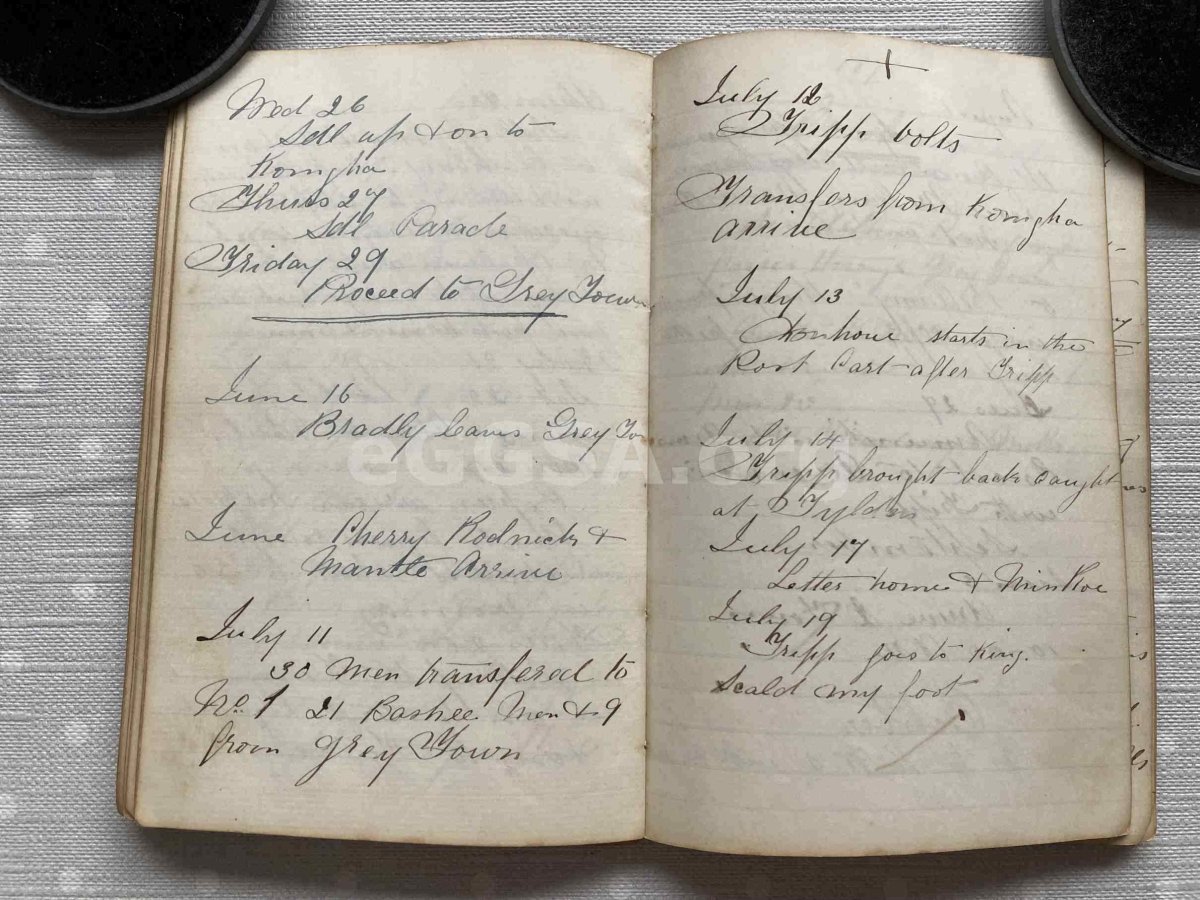 Wed 26
Sdl up & on to
Komgha
Thurs 27
Sdl Parade
Friday 29
Proceed to Grey Town
June 16
Bradly leaves Grey To
June Cherry Rodnick &
Mantle Arrive
July 11
30 Men transfered to
No. 1 21 Bashee Men & 9
from Grey Town
July 12
Tripp bolts
Transfers from Komgha
arrive
July 13
starts in the
Post Cart after Tripp
July 14
Tripp brought back caught
at Tylden
July 17
Letter home &
July 19
Tripp goes to King.
Scald my foot
eGGSA.org